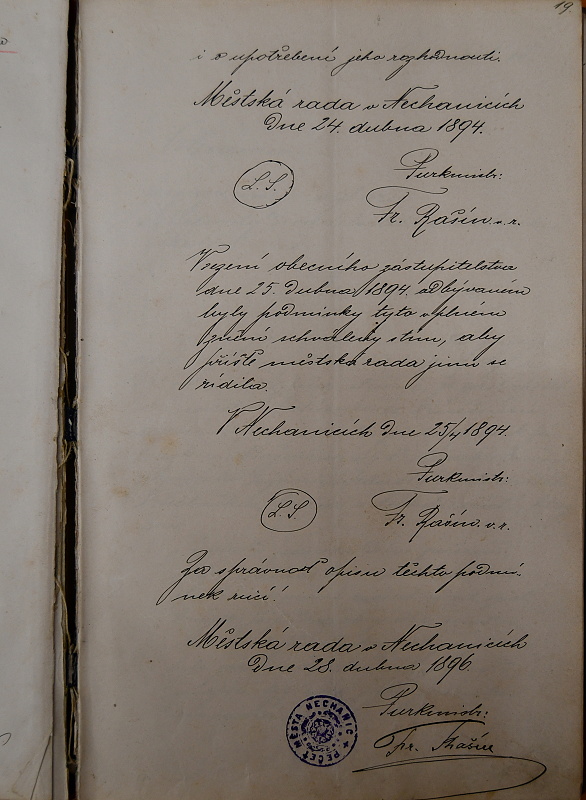 19.
i o upotřebení jeho rozhodnouti.
Městská rada v Nechanicích
Dne 24. dubna 1894.
Purkmistr:
L. S.
Fr. Rašín v. r.
V sezení obecního zastupitelstva
dne 25. dubna 1894. odbývaném
byly podmínky tyto v plném
znění schváleny s tím, aby
příště městská rada jimi se
řídila.
V Nechanicích dne 25/4 1894.
Purkmistr:
L. S.
Fr. Rašín v. r.
Za správnost opisu těchto podmí-
nek ručí!
Městská rada v Nechanicích
Dne 28. dubna 1896.
Purkmistr:
Fr. Rašín
PEČEŤ MĚSTA NECHANIC